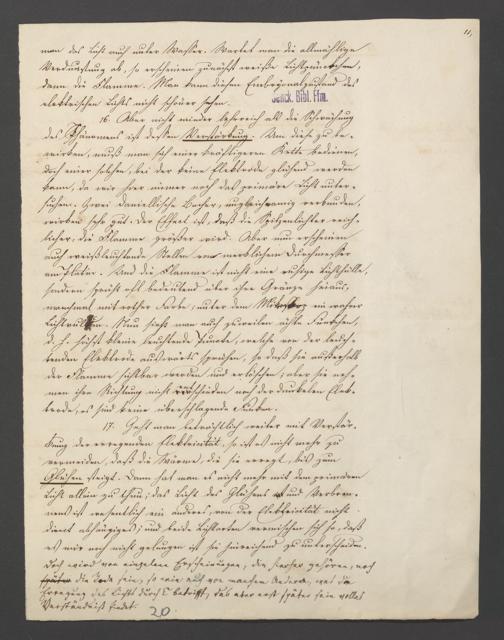 11,
man das Licht auch unter Wasser. Wartet man die allmählige
Verdunstung ab, so erscheinen zunächst weiße Lichtpünktchen,
dann die Flamme. Man kann diesen Embryonalzustand des
elektrischen Lichts nicht schöner sehen.
Senck. Bibl. Ffm.
16. Aber nicht minder lehrreich als die Schwächung
des Phänomens ist dessen Verstärkung. Um diese zu be-
wirken, muß man sich einer kräftigeren Kette bedienen,
doch einer solchen, bei der keine Elektrode glühend werden
kann, da wir hier immer noch das primäre Licht unter-
suchen. Zwei daniellsche Becher, ungleichnamig verbunden,
wirken sehr gut. Der Effekt ist, daß die Spitzenlichter reich-
licher, die Flamme größer wird. Aber nun erscheinen
auch weißleuchtende Stellen von merklichem Durchmesser
am Platin. Und die Flamme ist nicht eine ruhige Lichthülle,
sondern sprüht oft bedeutend über ihre Gränze hinaus,
manchmal mit rother Farbe; unter dem Mikroskop ein wahrer
Nun sieht man auch zuweilen ächte Fünkchen,
d. h. höchst kleine leuchtende Punkte, welche von der leuch-
tenden Elektrode auswärts sprühen, so daß sie außerhalb
der Flamme sichtbar werden und erlöschen; aber sie neh-
men ihre Richtung nicht nach der dunkelen Elek-
trode, es sind keine überschlagende Funken.
17. Geht man beträchtlich weiter mit Verstär-
kung der erregenden Elektricität, so ist es nicht mehr zu
vermeiden, daß die Wärme, die sie erregt, bis zum
Glühen steigt. Dann hat man es nicht mehr mit dem primären
Licht allein zu thun; das Licht des Glühens und Verbren-
nens ist wesentlich ein anderes, von der Elektricität nicht
direct abhängiges; und beide Lichtarten vermischen sich so, daß
es mir noch nicht gelungen ist sie hinreichend zu unterscheiden.
Doch wird von einzelnen Erscheinungen, die hierher gehören, noch
die Rede sein, so wie auch von manchem Andern, was die
Erregung des Lichts durch betrifft, das aber erst später sein volles
Verständniß findet.
20.